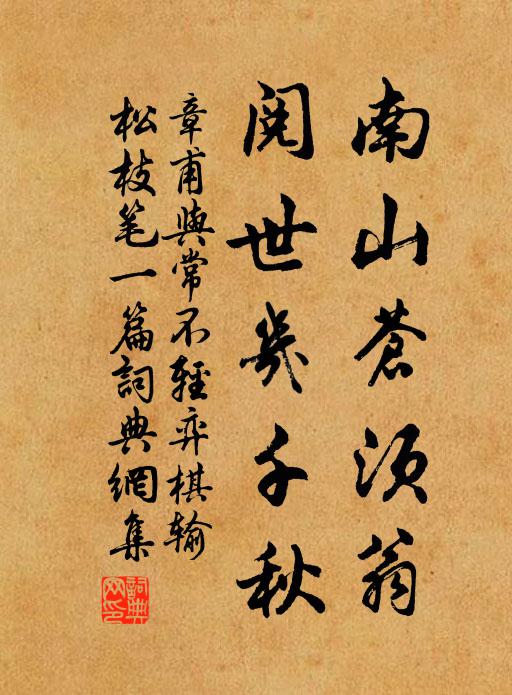 南山苍须翁
阅世几千秋
章甫與常不輕弈棋输
松枝笔一篇詞典網集
詞典
网印